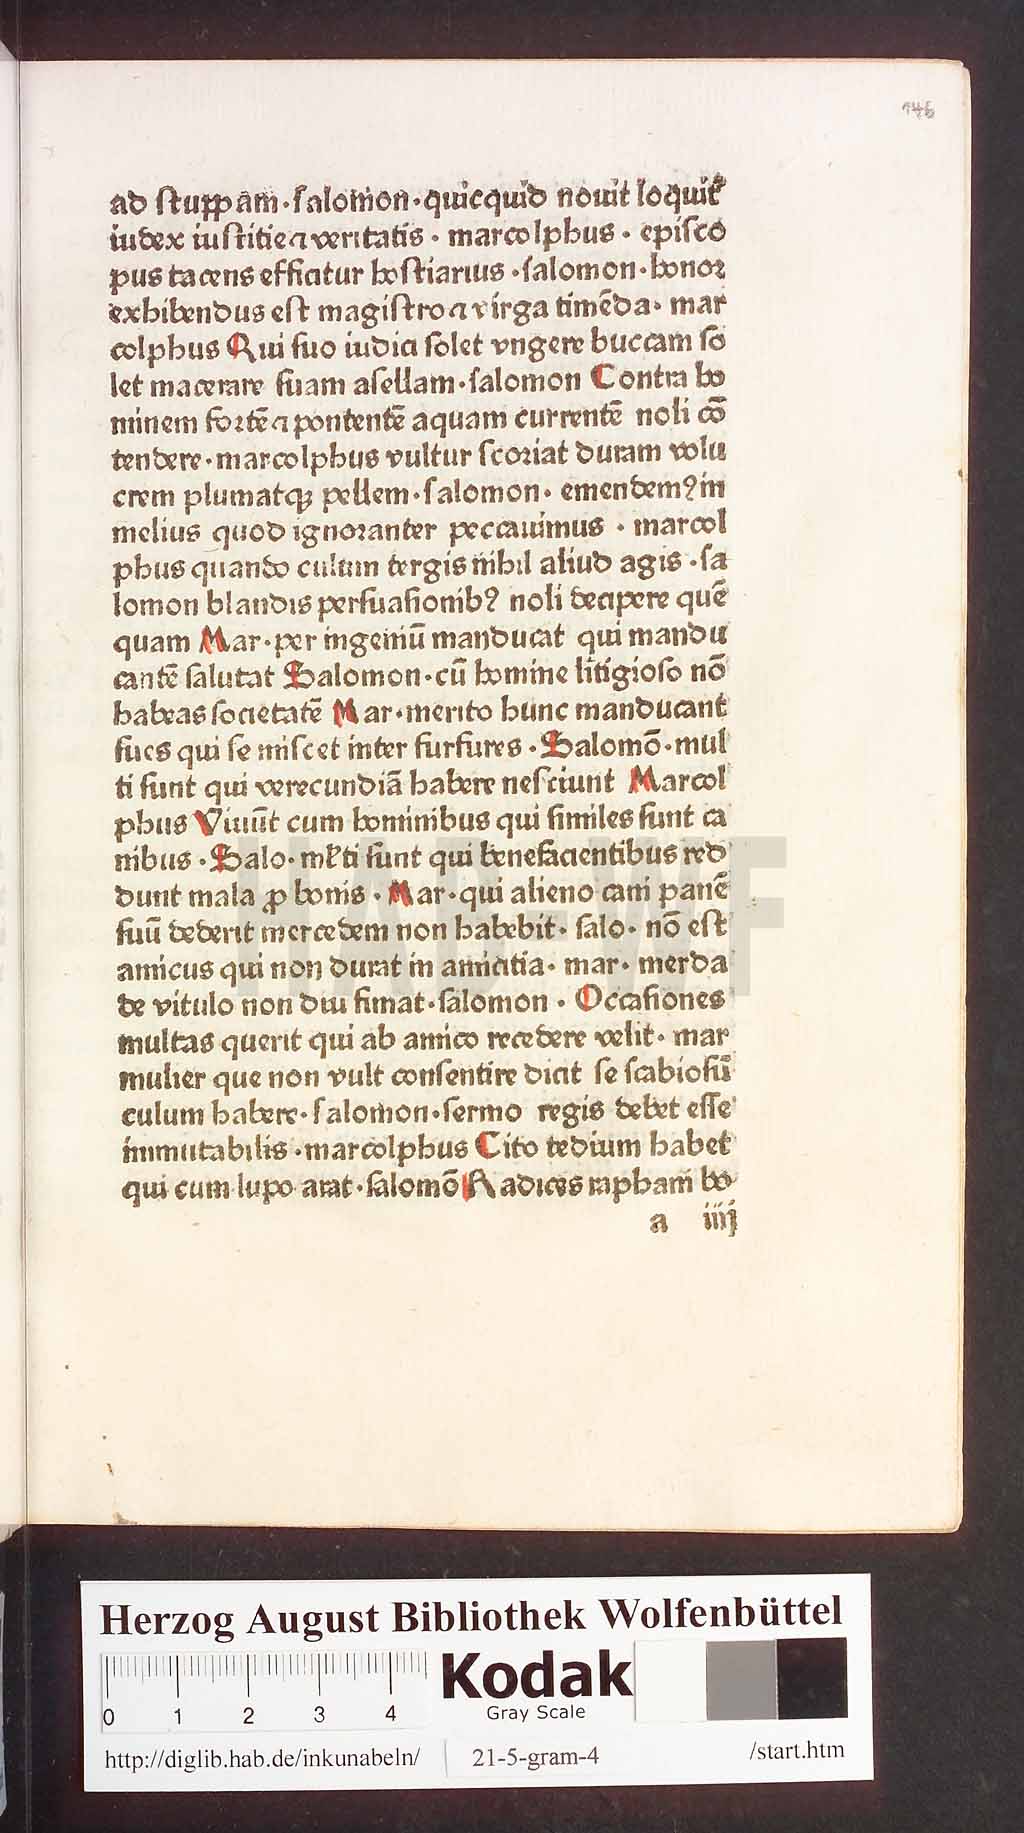 146
ad stuppam·salomon·quicquid nouit loquit̉
iudex iustitie ⁊ veritatis · marcolphus · episco
pus tacens efficitur hostiarius ·salomon·honoꝛ
exhibendus est magistro ⁊ virga timēda· mar
colphus Qui suo iudici solet vngere buccam so
let macerare suam asellam·salomon Contra ho
minem foꝛtē ⁊ pontentē aquam currentē noli cō
tendere·marcolphus vultur scoꝛiat duram volu
crem plumatqꝫ pellem·salomon· emendemꝰ in
melius quod ignoꝛanter peccauimus · marcol
phus quando culum tergis nihil aliud agis ·sa
lomon blandis persuasionibꝰ noli decipere quē
quam Mar·per ingeniū manducat qui mandu
cantē salutat Salomon·cū homine litigioso nō
habeas societatē Mar·merito hunc manducant
sues qui se miscet inter furfures ·Salomō·mul
ti sunt qui verecundiā habere nesciunt Marcol
phus Viuūt cum hominibus qui similes sunt ca
nibus ·Salo·mľti sunt qui benefacientibus red
dunt mala ꝓ bonis · Mar·qui alieno cani panē
suū dederit mercedem non habebit· salo· nō est
amicus qui non durat in amicitia· mar· merda
de vitulo non diu fimat·salomon · Occasiones
multas querit qui ab amico recedere velit· mar
mulier que non vult consentire dicit se scabiosū
culum habere·salomon·sermo regis debet esse
immutabilis·marcolphus Cito tedium habet
qui cum lupo arat·salomō Radices raphani bo
a iiij
HAB WF
Herzog August Bibliothek Wolfenbüttel
0 1 2 3 4
Kodak
Gray Scale
http://diglib.hab.de/inkunabeln/ 21-5-gram-4 /start.htm